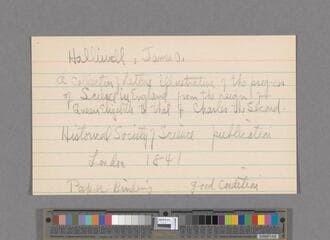 Halliwell, James O.
A Collection of letters illustrative of the progress
of Science in England from the reign of
Queen Elizabeth to that of Charles the Second.
Historical Society of Science publication
London 1841
Paper binding good condition